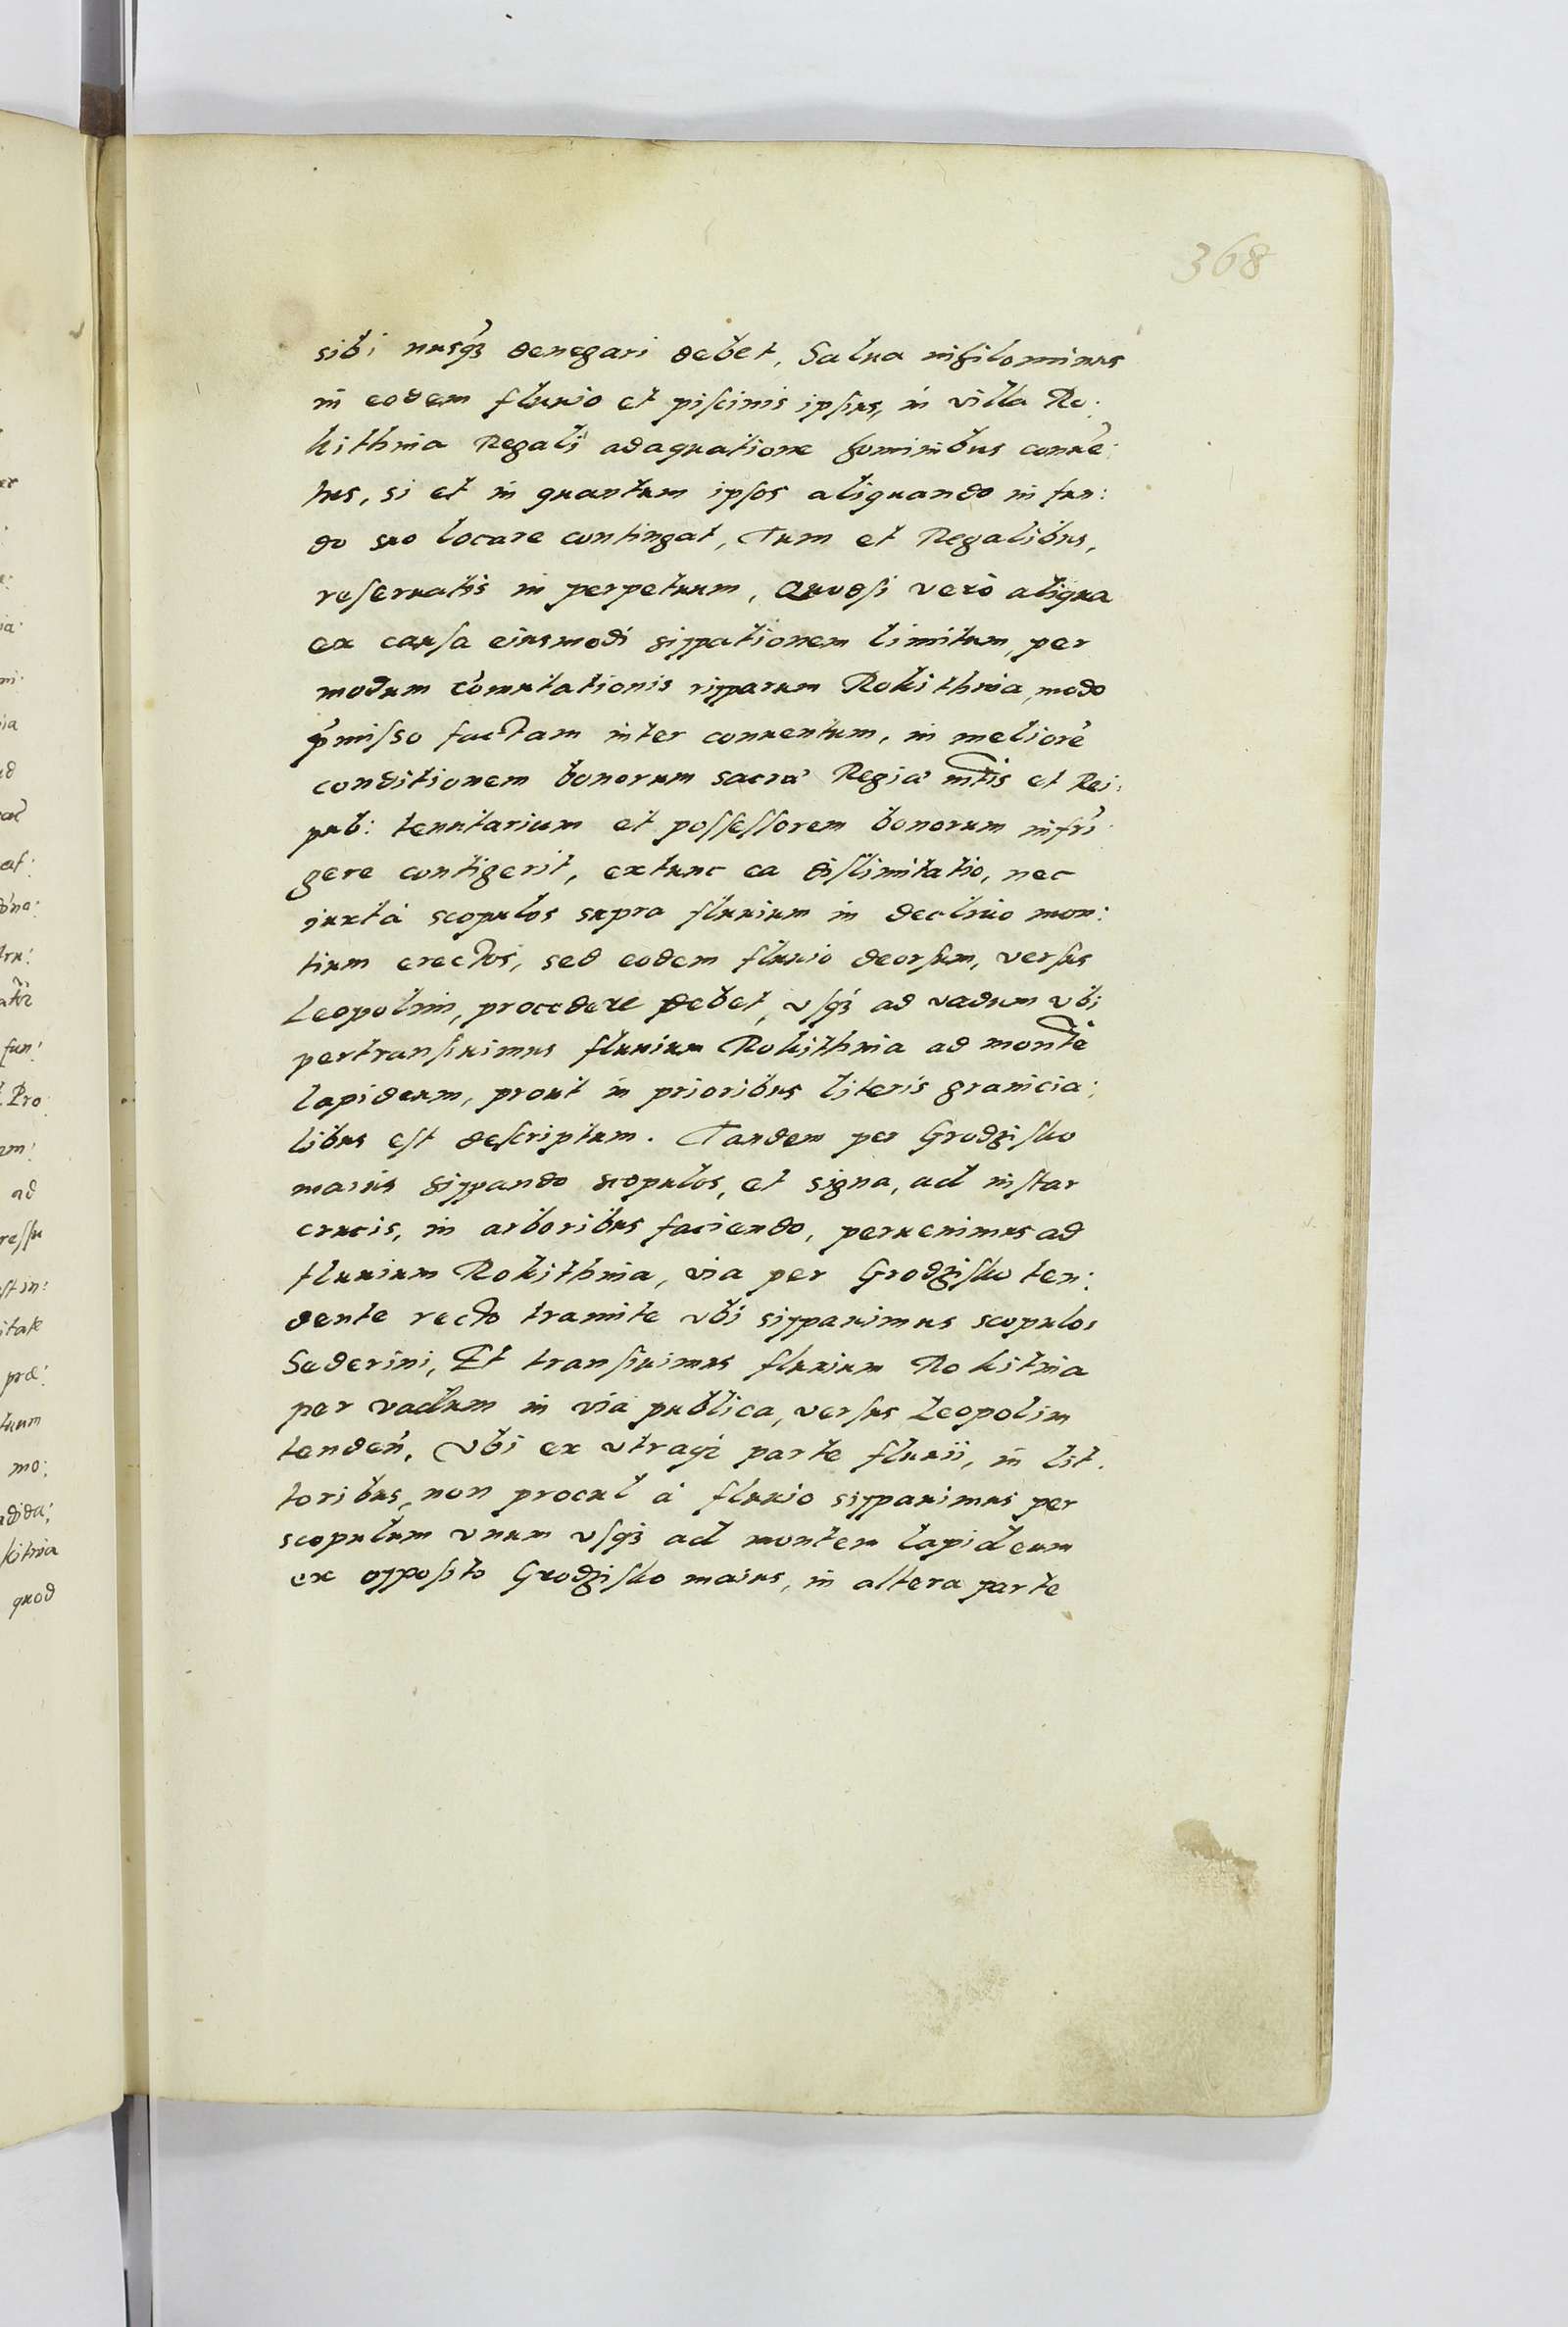 368
sibi nusq́ʒ denegari debet, Salua nihilominus
in eodem fluuio et piscinis ipsius, in villa Ro:
kithnia Regali adaquatione hominibus conuē:
tus, si et in quantum ipsos aliquando in fun:
do suo locare contingat, Tum et Regalibus,
reseruatis in perpetuum, Quodsi verò aliqua
ex causa eiusmodi sippationem limitum, per
modum cōmutationis ripparum Rokithnia, modo
p̄misso factam inter conuentum, in meliorē
conditionem bonorum sacrae Regiae mtis et Rei:
pub: tenutarium et possessorem bonorum infrī:
gere contigerit, extunc ea dislimitatio, nec
iuxtà scopulos supra fluuium in decliuo mon:
tium erectos, sed eodem fluuio deorsum, versus
Leopolim, procedere debet, vsqʒ ad vadum vbi
pertransiuimus fluuium Rokithnia ad montē
lapideum, prout in prioribus literis granicia:
libus est descriptum. Tandem per Grodzisko
maius sippando scopulos, et signa, ad instar
crucis, in arboribus faciendo, peruenimus ad
fluuium Rokithnia, via per Grodzisko ten:
dente recto tramite vbi sippauimus scopulos
Sederini, Et transiuimus fluuium Rokitnia
per vadum in via publica, versus Leopolim
tenden̄, Vbi ex vtraqʒ parte fluuii, in lit:
toribus, non procul à fluuio sippauimus per
scopulum vnum vsqʒ ad montem lapideum
ex opposito Grodzisko maius, in altera parte